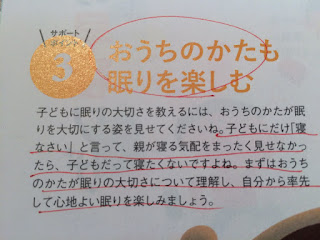 サポート
ポイント
3
おうちのかたも
眠りを楽しむ
子どもに眠りの大切さを教えるには、おうちのかたが眠
りを大切にする姿を見せてくださいね。子どもにだけ「寝
なさい」と言って、親が寝る気配をまったく見せなかっ
たら、子どもだって寝たくないですよね。まずはおうち
のかたが眠りの大切さについて理解し、自分から率先
して心地よい眠りを楽しみましょう。